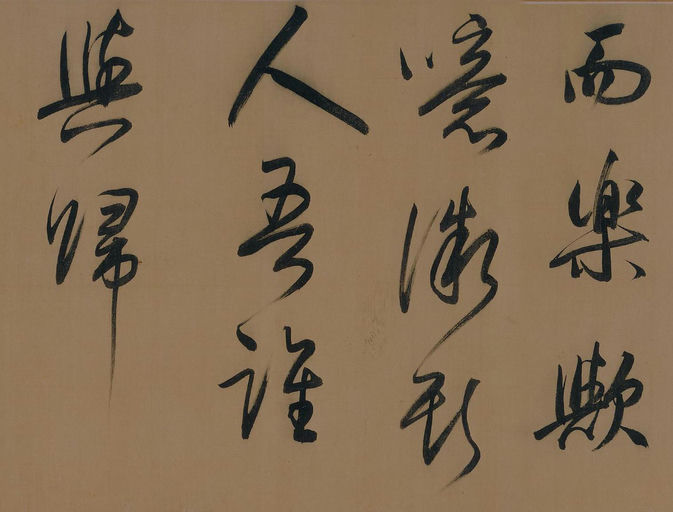 而樂歟
噫微斯
人吾誰
與歸